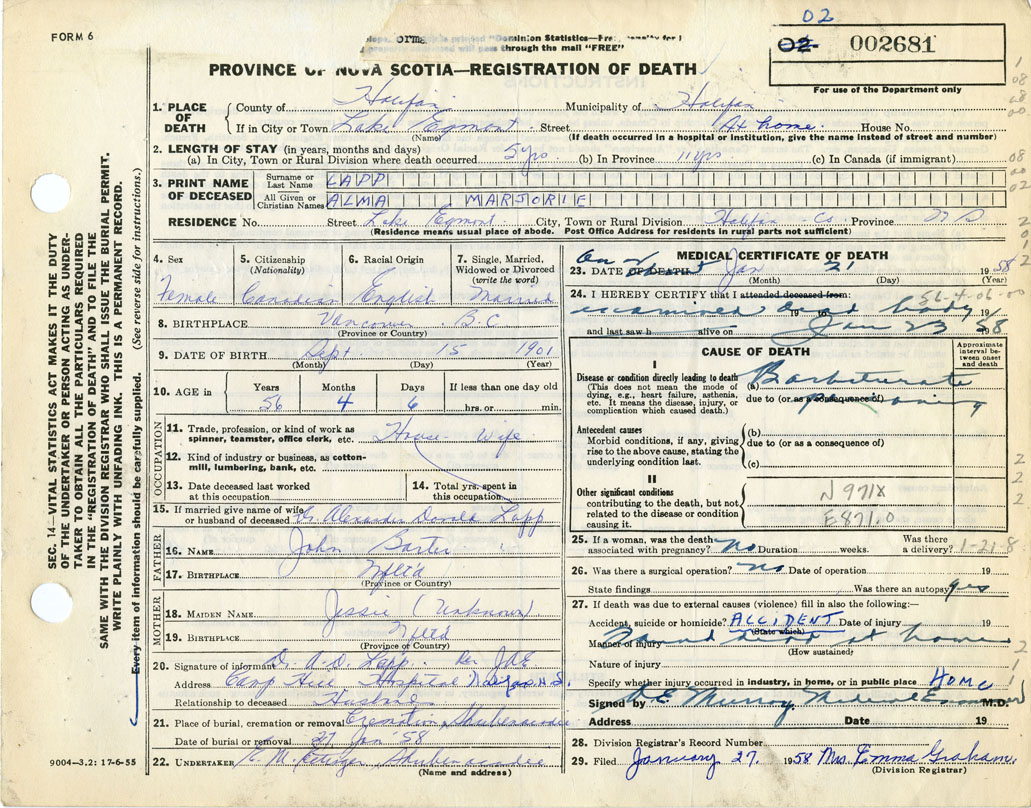 02
FORM 6
orma
"Dominion Statistics—Free
through the mail "FREE"
02- 002681
For use of the Department only
PROVINCE OF NOVA SCOTIA—REGISTRATION OF DEATH
1. PLACE OF DEATH
County of Halifax Municipality of Halifax
If in City or Town Lake Egmont Street At home House No.
(Name) (If death occurred in a hospital or institution, give the name instead of street and number)
2. LENGTH OF STAY (in years, months and days)
(a) In City, Town or Rural Division where death occurred 5 yrs. (b) In Province 11 yrs. (c) In Canada (if immigrant)
3. PRINT NAME OF DECEASED
Surname or Last Name LAPP
All Given or Christian Names ALMA MARJORIE
RESIDENCE No. Street Lake Egmont City, Town or Rural Division Halifax Co. Province N S
(Residence means usual place of abode. Post Office Address for residents in rural parts not sufficient)
4. Sex
Female
5. Citizenship (Nationality)
Canadian
6. Racial Origin
English
7. Single, Married, Widowed or Divorced (write the word)
Married
8. BIRTHPLACE Vancouver B.C
(Province or Country)
9. DATE OF BIRTH Sept 15 1901
(Month) (Day) (Year)
10. AGE in
Years Months Days If less than one day old
56 4 6 hrs. or min.
OCCUPATION
11. Trade, profession, or kind of work as spinner, teamster, office clerk, etc. House-Wife
12. Kind of industry or business, as cotton-mill, lumbering, bank, etc.
13. Date deceased last worked at this occupation
14. Total yrs. spent in this occupation
15. If married give name of wife or husband of deceased Dr Alexander Donald Lapp
FATHER
16. NAME John Barter
17. BIRTHPLACE Nfld
(Province or Country)
MOTHER
18. MAIDEN NAME Jessie (Unknown)
19. BIRTHPLACE Nfld
(Province or Country)
20. Signature of informant Dr. A. D. Lapp. Per JAE
Address Camp Hill Hospital N.S.
Relationship to deceased Husband
21. Place of burial, cremation or removal Cremation, Shubenacadie
Date of burial or removal 27 Jan '58
22. UNDERTAKER Shubenacadie
(Name and address)
9004—3.2: 17-6-55
SEC. 14—VITAL STATISTICS ACT MAKES IT THE DUTY
OF THE UNDERTAKER OR PERSON ACTING AS UNDER-
TAKER TO OBTAIN ALL THE PARTICULARS REQUIRED
IN THE "REGISTRATION OF DEATH" AND TO FILE THE
SAME WITH THE DIVISION REGISTRAR WHO SHALL ISSUE THE BURIAL PERMIT.
WRITE PLAINLY WITH UNFADING INK. THIS IS A PERMANENT RECORD.
Every item of information should be carefully supplied. (See reverse side for instructions.)
MEDICAL CERTIFICATE OF DEATH
23. DATE OF DEATH On or about Jan 21 1958
(Month) (Day) (Year)
56-4-06-00
24. I HEREBY CERTIFY that I attended deceased from:
examined dead body
19 to 19
and last saw h alive on Jan 23 1958
CAUSE OF DEATH
Approximate interval between onset and death
I
Disease or condition directly leading to death
(This does not mean the mode of dying, e.g., heart failure, asthenia, etc. It means the disease, injury, or complication which caused death.)
(a) Barbiturate Poisoning
due to (or as a consequence of)
Antecedent causes
Morbid conditions, if any, giving rise to the above cause, stating the underlying condition last.
(b)
due to (or as a consequence of)
(c)
II
Other significant conditions
contributing to the death, but not related to the disease or condition causing it.
N 971X
E871.0
25. If a woman, was the death associated with pregnancy? No Duration weeks. Was there a delivery? 1-21-8
26. Was there a surgical operation? No Date of operation 19
State findings Was there an autopsy yes
27. If death was due to external causes (violence) fill in also the following:—
Accident, suicide or homicide? ACCIDENT Date of injury 19
(State which)
Manner of injury Found dead at home
(How sustained)
Nature of injury
Specify whether injury occurred in industry, in home, or in public place HOME
Signed by D E Murray Medical Examiner M.D.
Address Date 19
28. Division Registrar's Record Number
29. Filed January 27. 1958 Mrs. Emma Graham.
(Division Registrar)
1
08
08
00
08
00
02
2
0
1
2
2
2
2
2
1
1